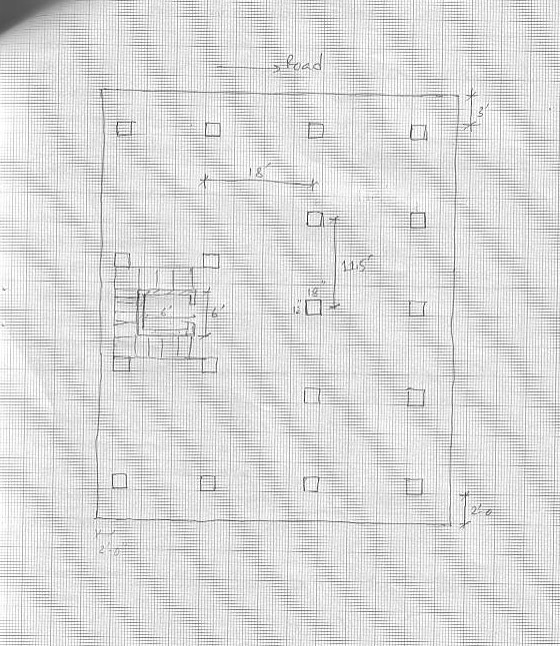 Road
3'
18'
11.5'
18"
12"
6'
6'
2'-0
2'-0